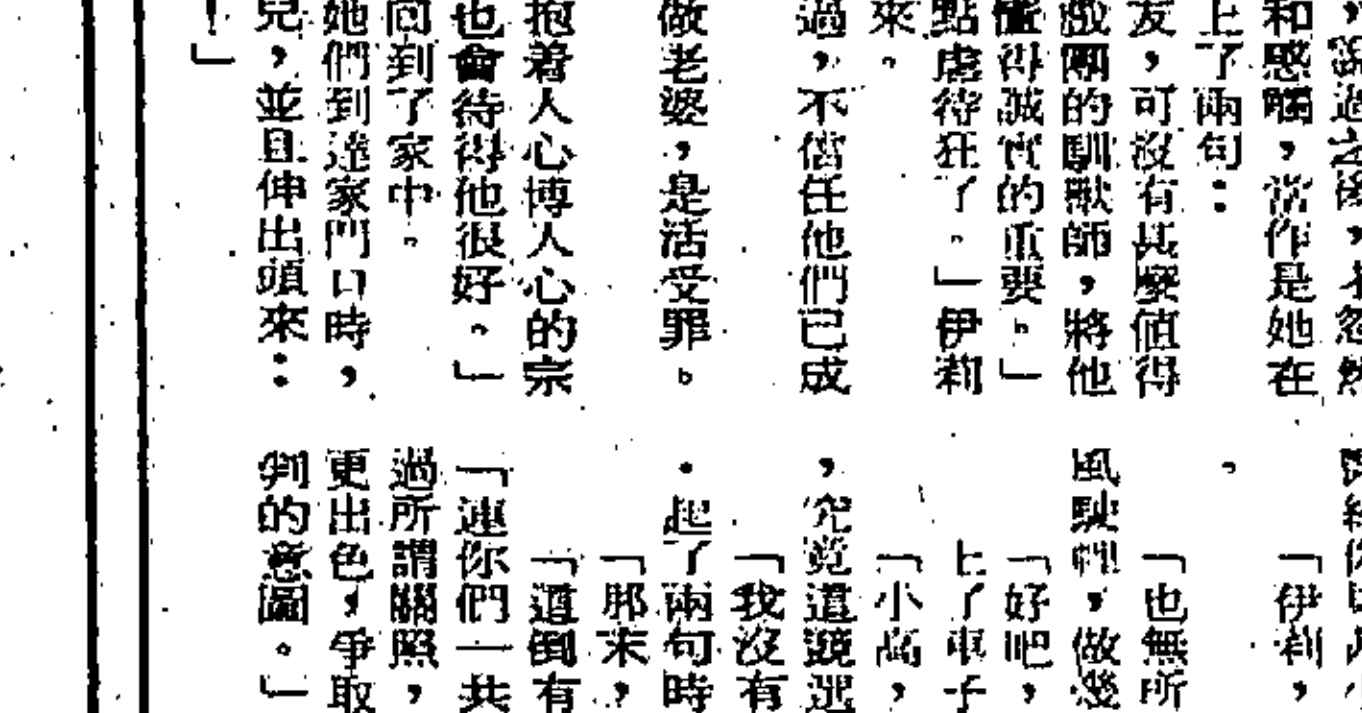 ，說過之後，
和感觸，當作是她在
上了兩句：
友，可沒有甚麼值得
戲團的馴獸師，將他
懂得誠實的重要。」
點虐待狂了。」伊莉
來。
過，不信任他們已成
做老婆，是活受罪。
抱着人心博人心的宗
也會待得他很好。」
回到了家中。
她們到達家門口時，
兒，並且伸出頭來：
！」
「伊莉，
。
「也無所
風駛，做
「好吧，
上了車子
「小高，
，究竟這
「我沒有
起了兩句時
「那末，
「這倒有
「連你們一共
過所謂關照，
更出色，爭取
判的意圖。」